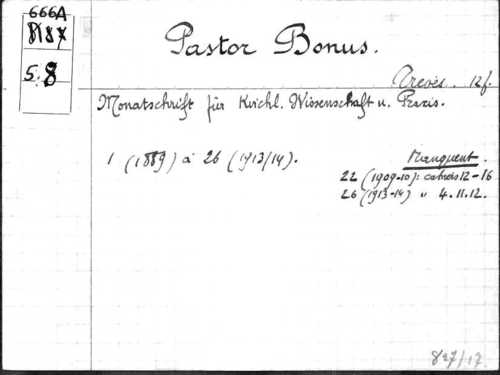 666A
8187
5.8
Pastor Bonus.
Trèves. 12f.
Monatschrift für Kirchl. Wissenschaft u. Praxis.
1 (1889) à 26 (1913/14).
Manquent.
22 (1909-10): cahiers 12-16
26 (1913-14) " 4.11.12.
827/17